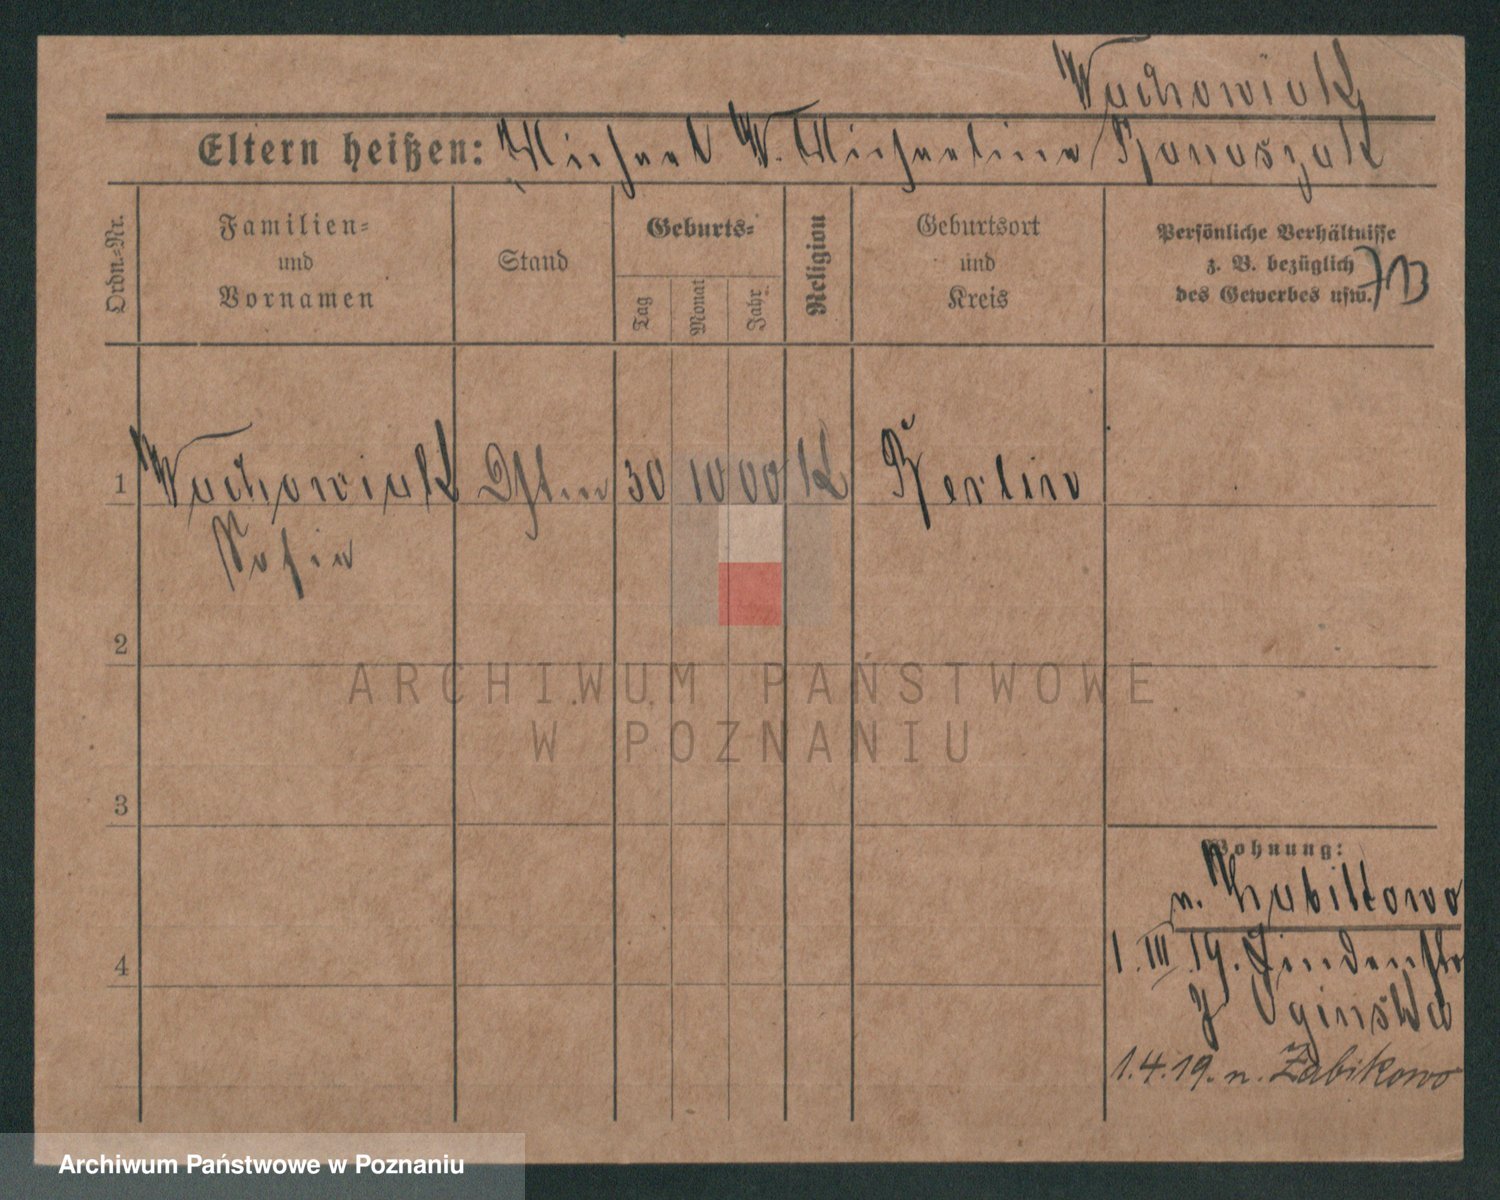 Wachowiak
Eltern heißen: Michael W. Michaelina Banaszak
Ordn.-Nr.
Familien-
und
Vornamen
Stand
Geburts-
Tag
Monat
Jahr
Religion
Geburtsort
und
Kreis
Persönliche Verhältnisse
z. B. bezüglich
des Gewerbes usw.
1 Wachowiak 30 10 00 K Berlin
Sofie
2
3
4
Wohnung:
n. Zabikowo
1. III 19. Lindenstr
1.4.19. n. Żabikowo
ARCHIWUM PAŃSTWOWE
W POZNANIU
Archiwum Państwowe w Poznaniu